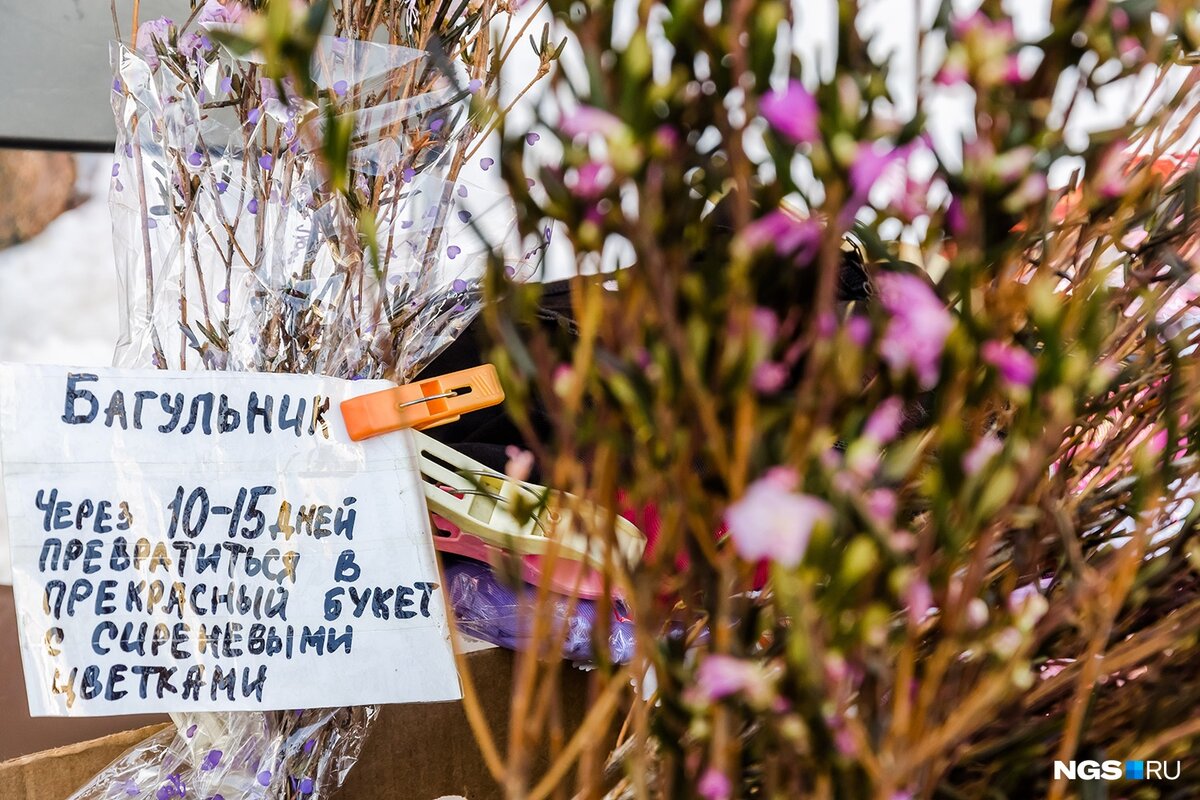 Багульник
Через 10-15 дней
превратиться в
прекрасный букет
с сиреневыми
цветками
NGS RU